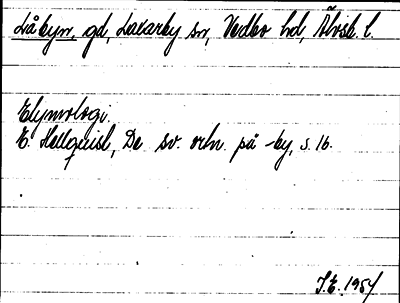 Låbyn, gd, Laxarby sn, Vedbo hd, Älvsb. l.
Etymologi.
E. Hellquist, De sv. ortn. på -by, s. 16.
J.E. 1954